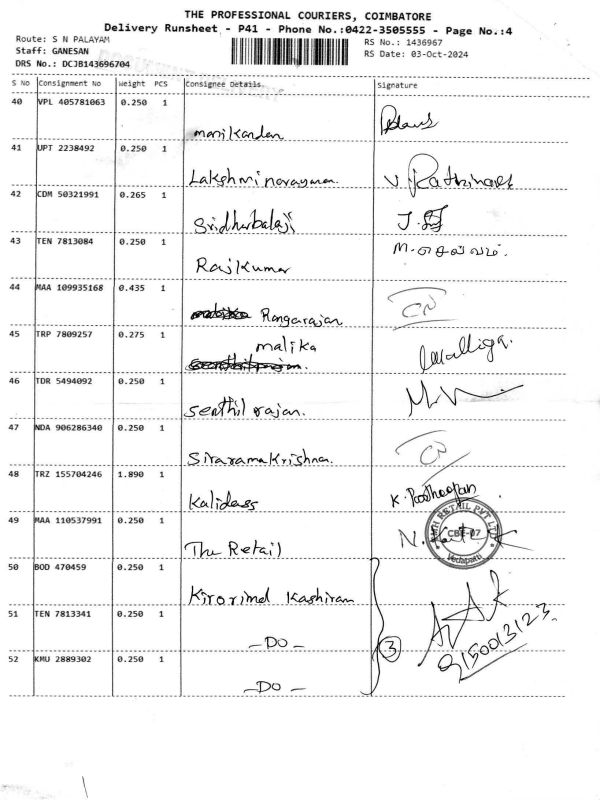 THE PROFESSIONAL COURIERS, COIMBATORE
Delivery Runsheet - P41 - Phone No.:0422-3505555 - Page No.:4
Route: S N PALAYAM
RS No.: 1436967
Staff: GANESAN
RS Date: 03-Oct-2024
DRS No.: DCJB143696704
S No Consignment No Weight PCS Consignee Details Signature
40 VPL 405781063 0.250 1
manikandan
41 UPT 2238492 0.250 1
Lakshminarayanan
42 CDM 50321991 0.265 1
Sridharbalaji J.
43 TEN 7813084 0.250 1 M. செல்வம்.
Rajkumar
44 MAA 109935168 0.435 1
Rangarajan CN
45 TRP 7809257 0.275 1
malika
46 TDR 5494092 0.250 1
Senthil rajan.
47 NDA 906286340 0.250 1
Sivaramakrishnan. CN
48 TRZ 155704246 1.890 1
Kalidass K.
49 MAA 110537991 0.250 1
The Retail N.
RETAIL PVT LTD
CBE-07
Vedapatti
50 BOD 470459 0.250 1
Kirorimal Kashiram
51 TEN 7813341 0.250 1
- DO - 3 9150013123
52 KMU 2889302 0.250 1
- DO -